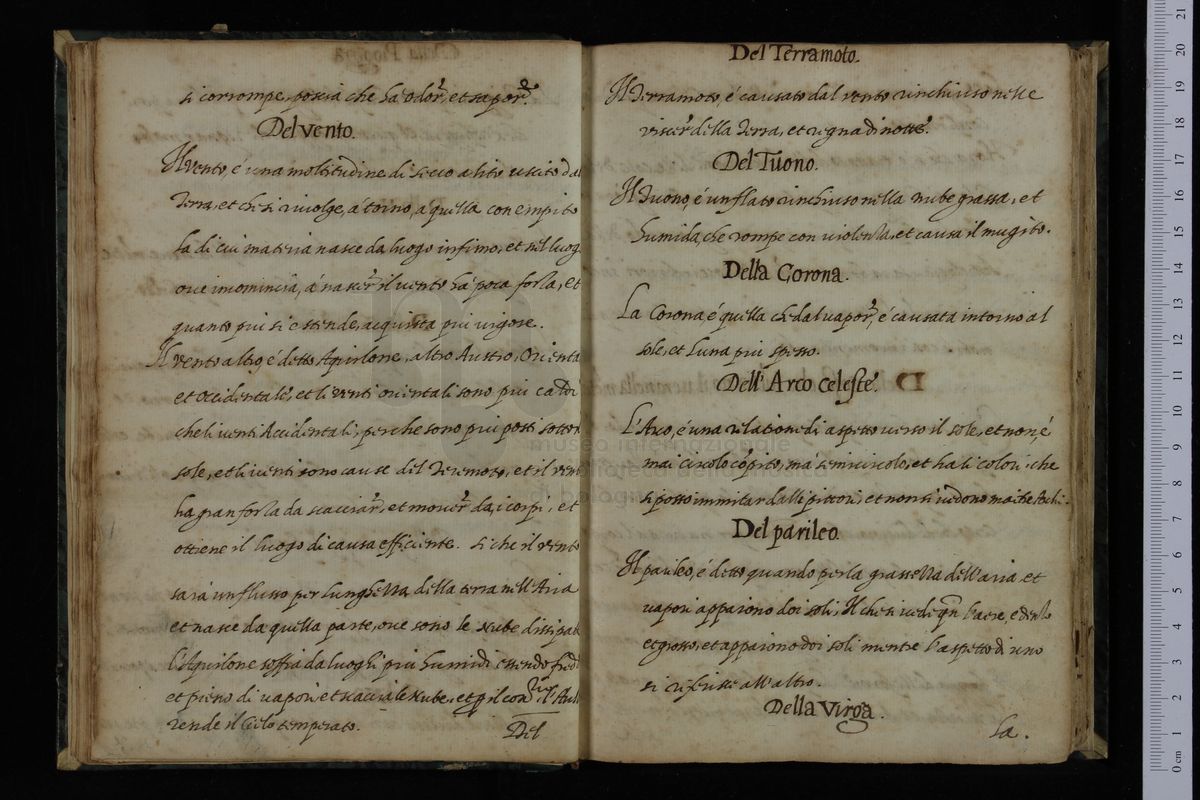 si corrompe, poscia che ha odor, et sapor.
Del vento.
Il vento, é una moltitudine di secco alito uscito dal
Terra, et che si rivolge, a torno, a quella con empito
la di cui materia nasce da luogo infimo, et nel luog
ove incomincia, á nascer il vento há poca forza, et
quanto piu si estende, acquista piu vigore.
Il vento altro é detto Aquilone, altro Austro, Orienta
et Occidentale, et li venti orientali sono piu caldi
che li venti Accidentali, perche sono piu posti sotto
sole, et li venti sono cause del Teremoto, et il vent
ha gran forza da scacciar, et mover da, i corpi, et
ottiene il luogo di causa efficiente. Si che il vento
sara un flusso per lunghezza della terra nell'Aria
et nasce da quella parte, ove sono le nube dissipat
l'Aquilone soffia da luoghi piu humidi essendo fred
et pieno di vapori, et scaccia le Nube, et p il con il Aul
rende il Cielo temperato.
Del
Del Terramoto.
Il Terramoto, é causato dal vento rinchiuso nelle
viscer della Terra, et regna di notte.
Del Tuono.
Il Tuono, é un flato rinchiuso nella nube grassa, et
humida, che rompe con violenza, et causa il mugito.
Della Corona.
La Corona é quella che dal vapor, é causata intorno al
sole, et Luna piu spesso.
Dell'Arco celeste.
L'Arco, é una relatione di aspetto verso il sole, et non, é
mai circolo cõpito, má semicircolo, et ha li colori, che
si posso immitar dalli pittori, et non si vedono mai
Del parileo.
Il parileo, é detto quando per la grassezza dell'aria, et
vapori appaiono doi soli, Il che si vede qñ l'aere, e denso
et grosso, et appaiono doi soli mentre l'aspetto di uno
si riferisse all'altro.
Della Virga.
La.
museo internazionale
di bologna
0 cm 1 2 3 4 5 6 7 8 9 10 11 12 13 14 15 16 17 18 19 20 21